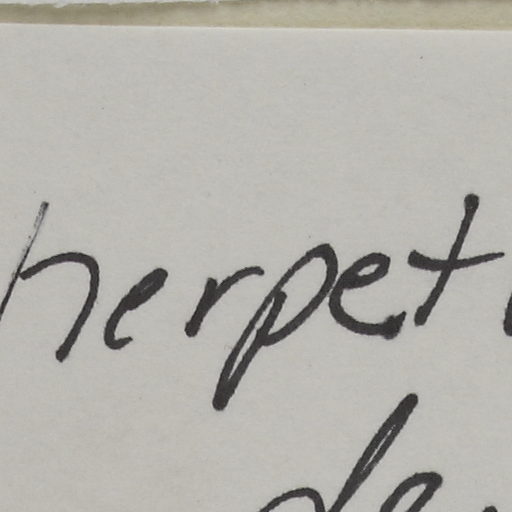 herpet
de